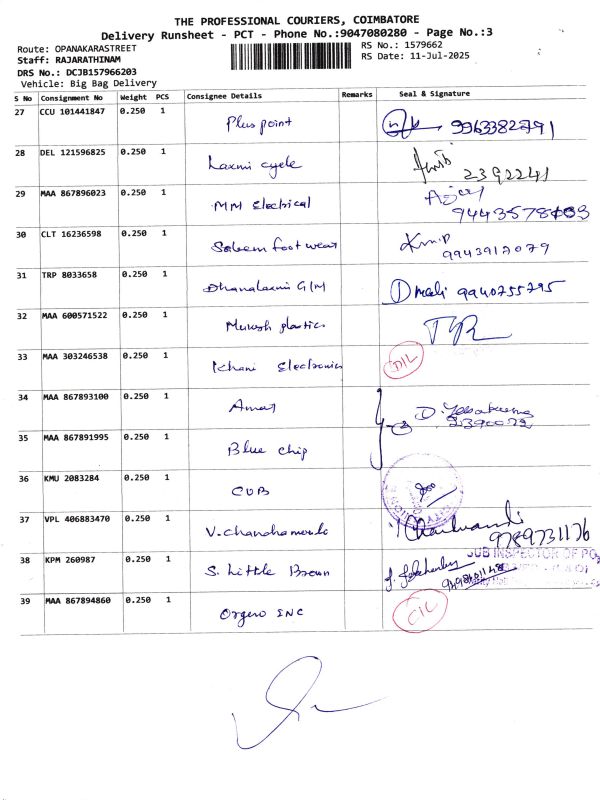 THE PROFESSIONAL COURIERS, COIMBATORE
Delivery Runsheet - PCT - Phone No.:9047080280 - Page No.:3
Route: OPANAKARASTREET
RS No.: 1579662
Staff: RAJARATHINAM
RS Date: 11-Jul-2025
DRS No.: DCJB157966203
Vehicle: Big Bag Delivery
S No Consignment No Weight PCS Consignee Details Remarks Seal & Signature
27 CCU 101441847 0.250 1 Plus point 9963382791
28 DEL 121596825 0.250 1 Laxmi cycle 2392241
29 MAA 867896023 0.250 1 MM Electrical
30 CLT 16236598 0.250 1 Saleem foot wear 9943917079
31 TRP 8033658 0.250 1 Dhanalaxmi G/M Dmali 9940755795
32 MAA 600571522 0.250 1 plastics
33 MAA 303246538 0.250 1 Khani Electronics DIL
34 MAA 867893100 0.250 1 Amar
35 MAA 867891995 0.250 1 Blue chip 2390072
36 KMU 2083284 0.250 1 CUB
37 VPL 406883470 0.250 1 9789731176
38 KPM 260987 0.250 1 S. Little Brown
SUB INSPECTOR OF PO
39 MAA 867894860 0.250 1 INC CIL